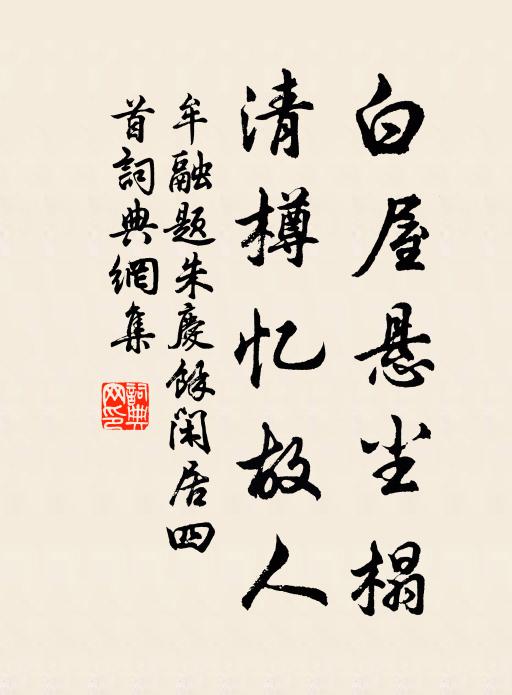 白屋悬尘榻
清樽忆故人
牟融题朱慶餘闲居四
首詞典網集
詞典
网印